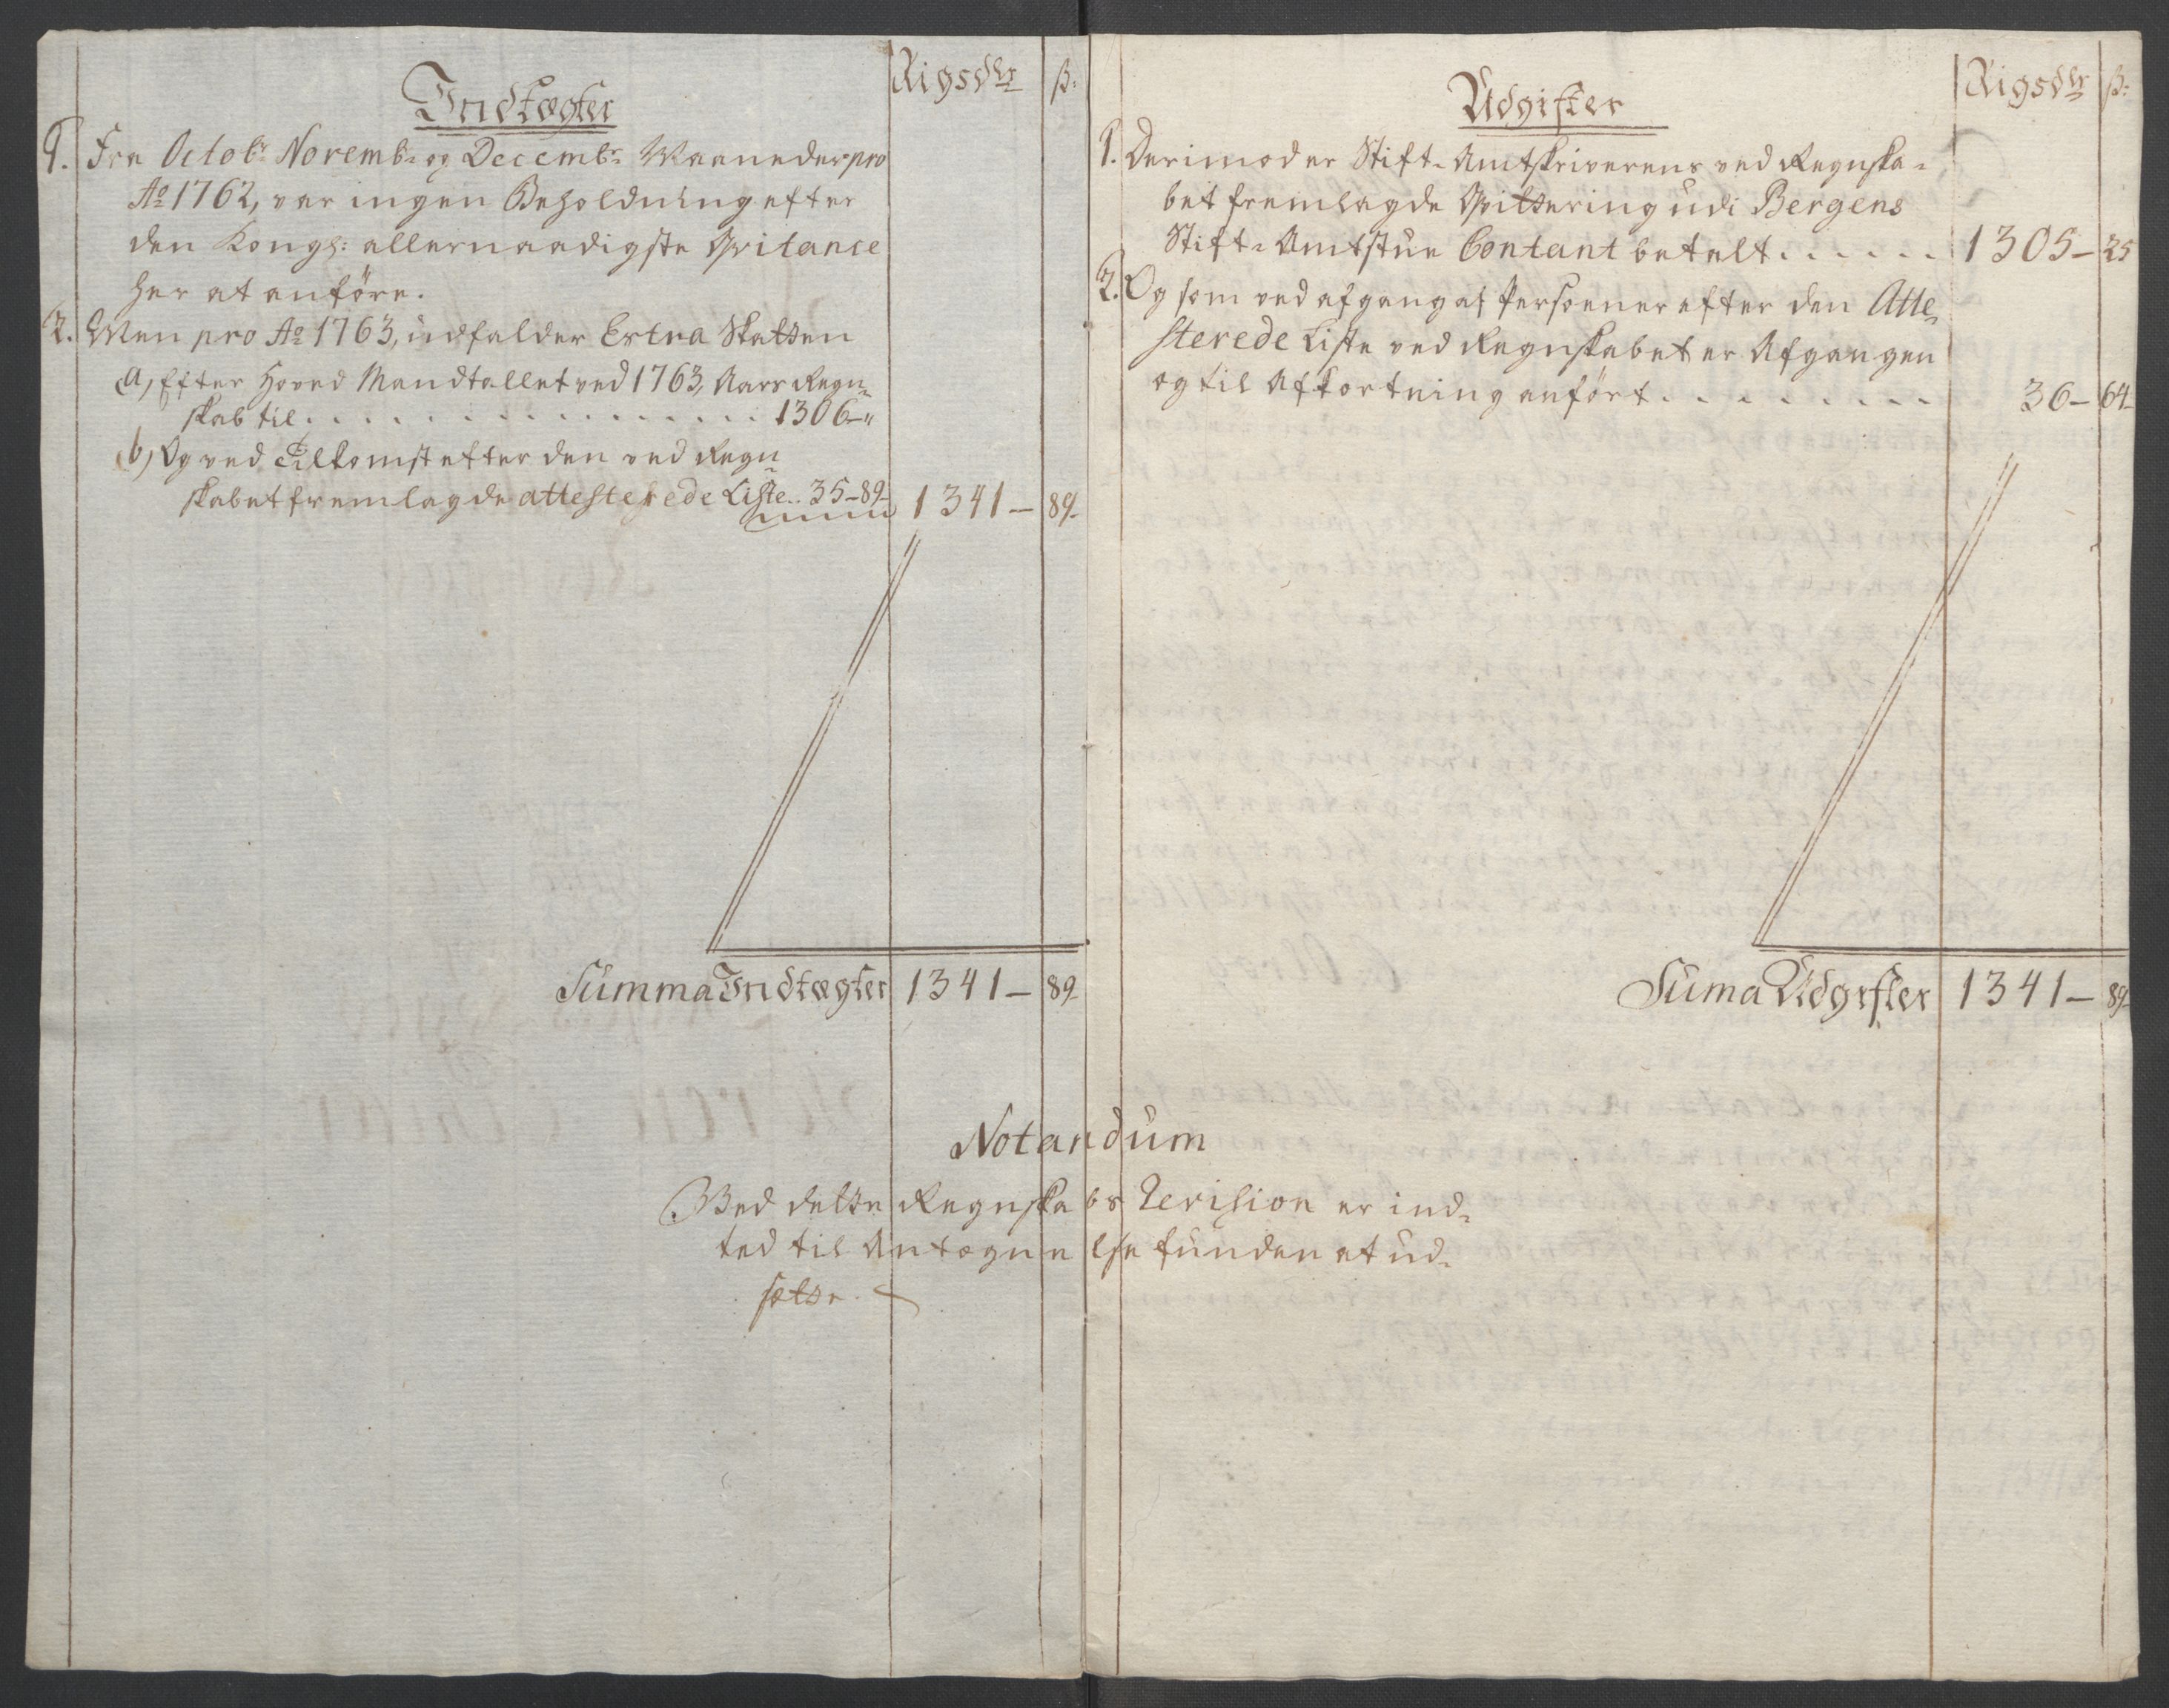 Indtægter
Rigsdlr
ß:
1. Fra Octobr Novembr og Decembr Maaneder pro
Ao 1762, var ingen Beholdning efter
den Kongl: allernaadigste Qvitance
her at anföre.
2. Men pro Ao 1763, udfalder Extra Skatten
a) Efter Hoved Mandtallet ved 1763, Aars Regn-
skab til . . . . . . . . . . . . . . . . 1306-"
b) Og ved Tilkomst efter den ved Regn-
skabet fremlagde attesterede Liste.. 35-89- 1341- 89-
Summa Indtægter 1341- 89-
Udgifter
Rigsdlr
ß:
1. Derimod er Stift-Amtskriverens ved Regnska-
bet fremlagde Qvittering udi Bergens
Stift-Amtstue Contant betalt . . . . . . 1305- 25
2. Og som ved afgang af Persoener efter den Atte-
sterede Liste ved Regnskabet er Afgangen
og til Afkortning anfört . . . . . . . . . 36- 64-
Suma Udgifter 1341- 89-
Notandum
Ved dette Regnskabs Revision er ind-
ted til Antegnelse funden at ud-
sætte.